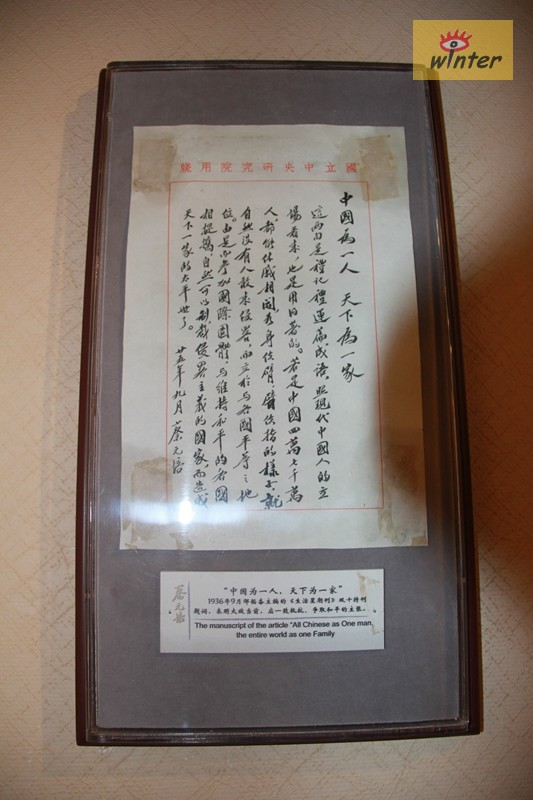 winter
國立中央研究院用牋
中國為一人 天下為一家
這兩句是禮記禮運篇成語。照現代中國人的立
場看來,也是用得著的。若是中國四萬七千萬
人,都能休戚相關,為身使臂,臂使指的樣子,就
自然沒有人敢來侵畧,而立於与各國平等之地
位。由是而參加國際團體,与維持和平的各國
相提攜,自然可以制裁侵畧主義的國家,而造成
天下一家的太平世了。 廿五年九月 蔡元培
蔡元培
“中国为一人,天下为一家”
1936年9月邹韬奋主编的《生活星期刊》双十特刊
题词,表明大敌当前,应一致抵抗,争取和平的主张。
The manuscript of the article "All Chinese as One man,
the entire world as one Family